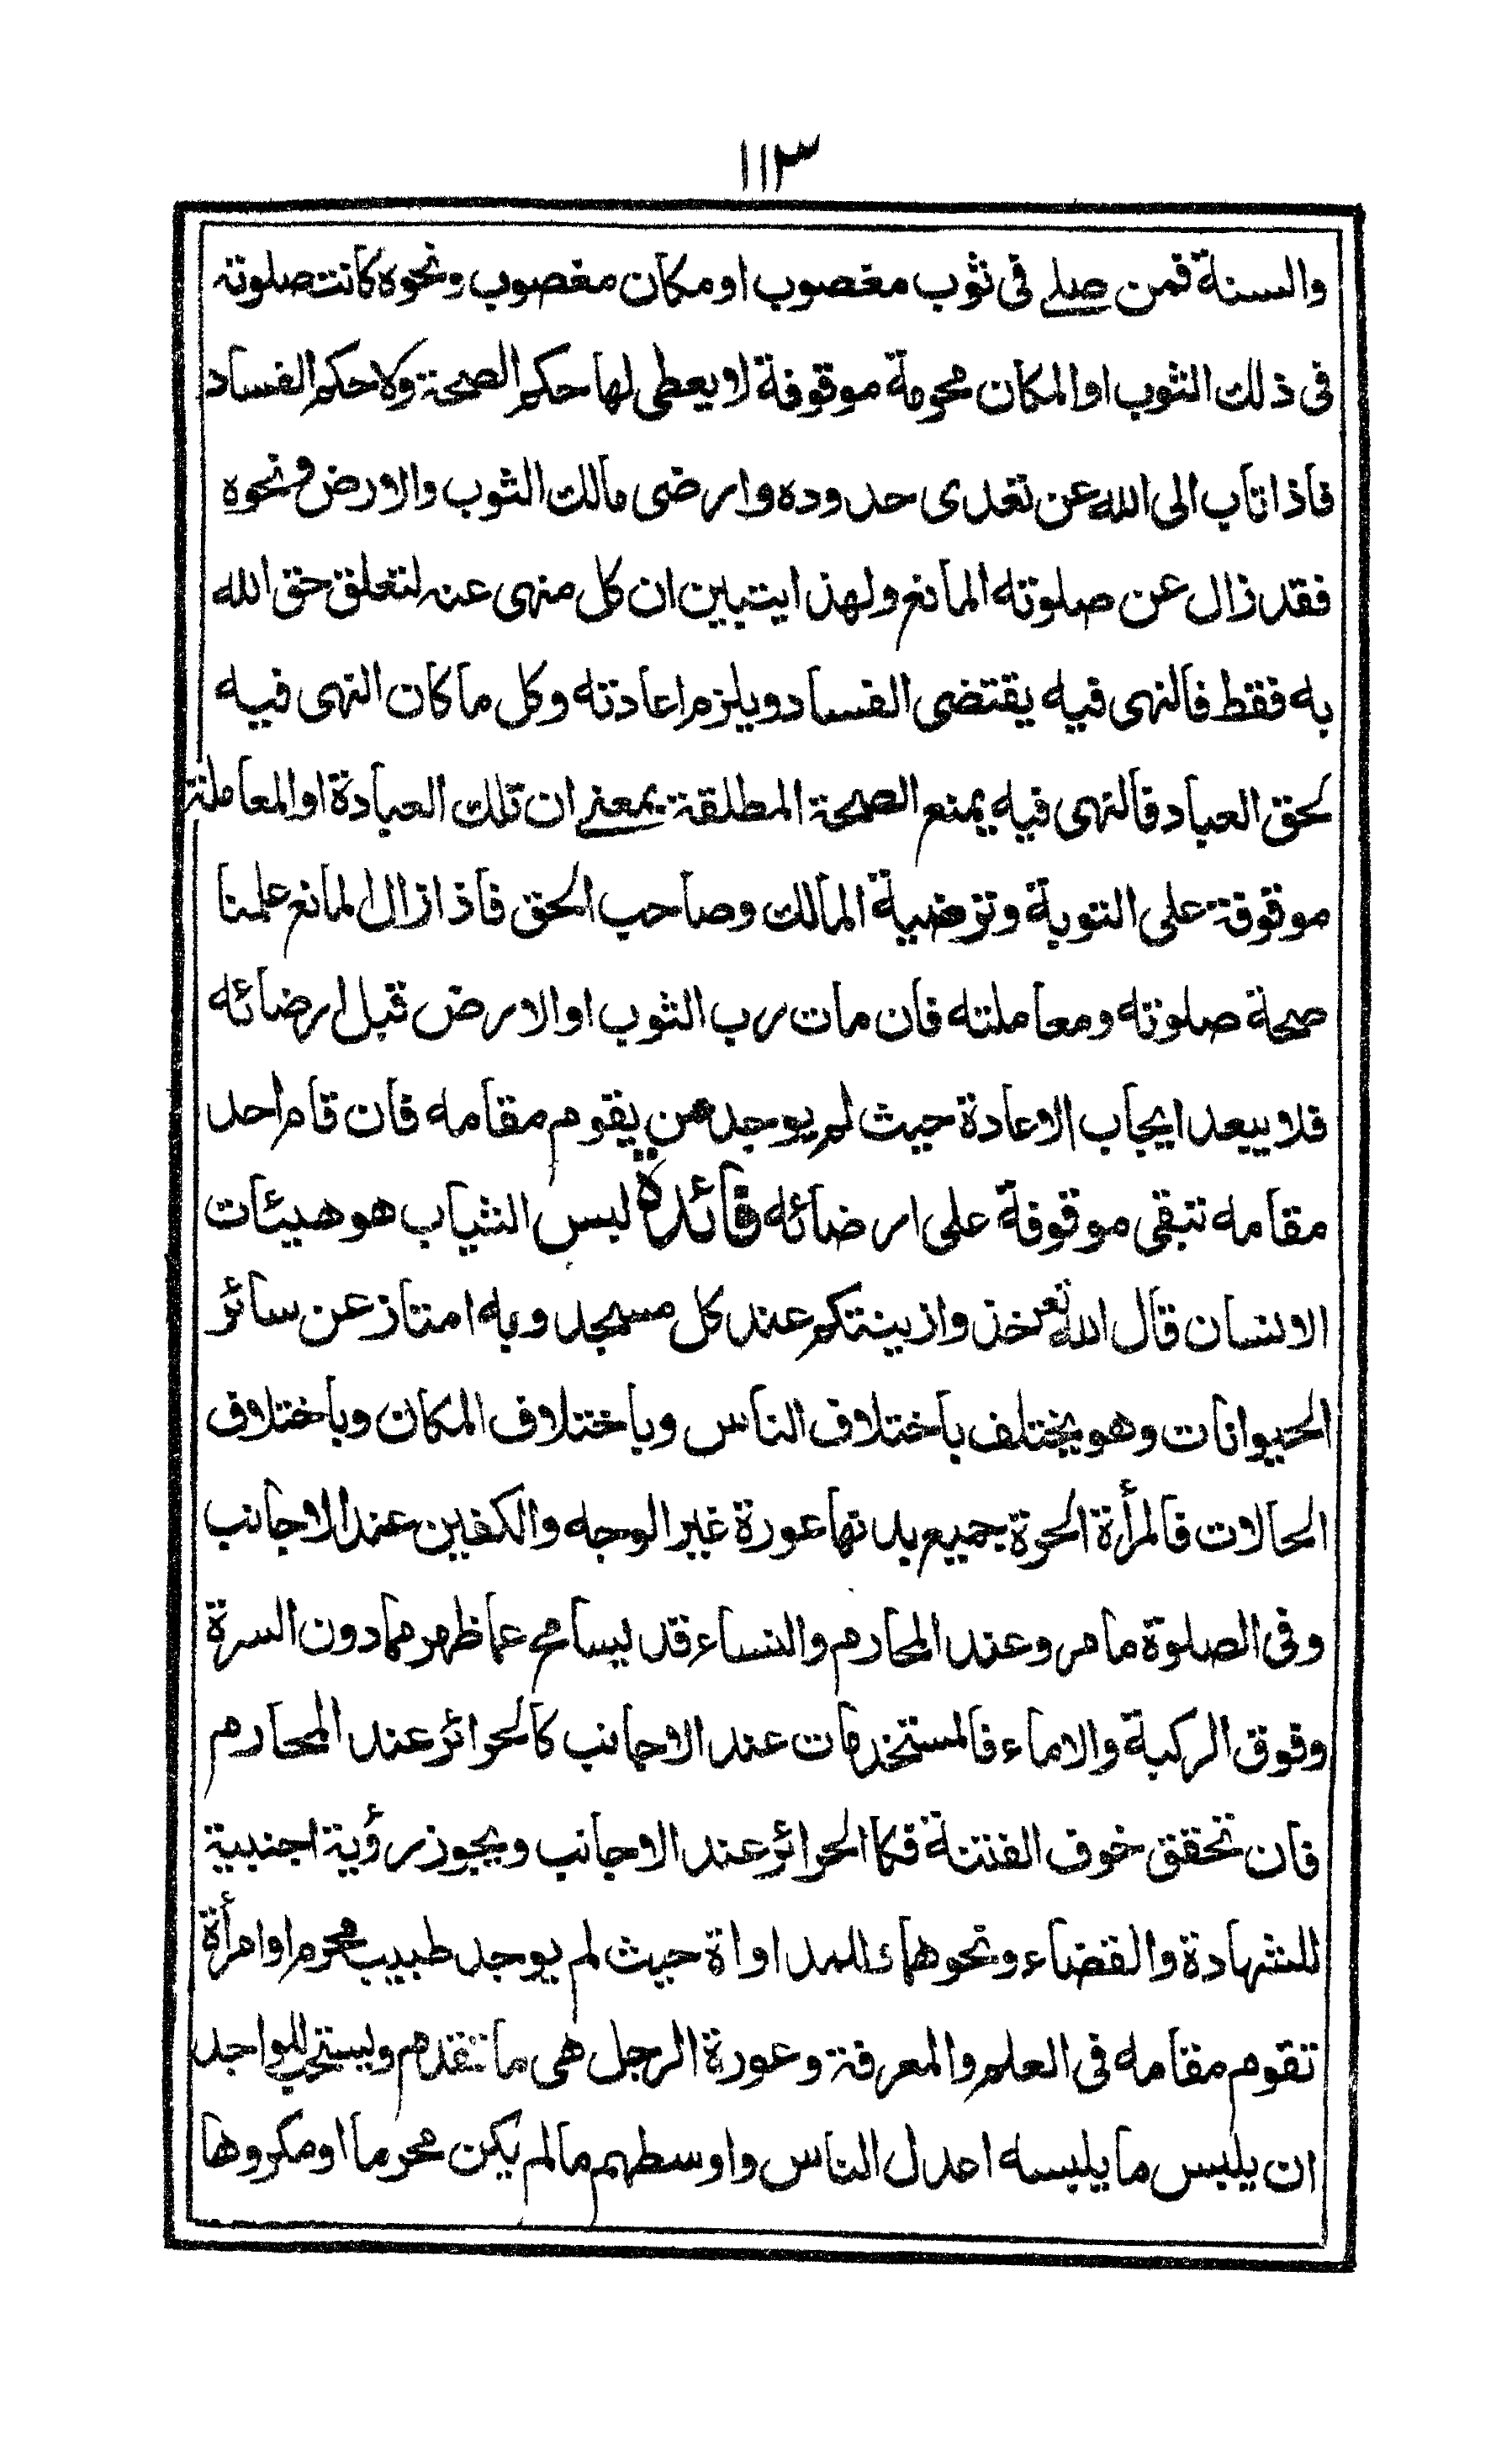 ١١٣
والسنة فمن صلى فى ثوب مغصوب او مكان مغصوب ونحوه كانت صلوته
فى ذلك الثوب او المكان محرمة موقوفة لا يعطى لها حكم الصحة ولا حكم الفساد
فاذا تاب الى الله عن تعدى حدوده وارضى مالك الثوب والارض ونحوه
فقد زال عن صلوته المانع ولهذا يتبين ان كل منهى عنه لتعلق حق الله
به فقط فالنهى فيه يقتضى الفساد ويلزم اعادته وكل ما كان النهى فيه
لحق العباد فالنهى فيه يمنع الصحة المطلقة بمعنى ان تلك العبادة او المعاملة
موقوفة على التوبة وترضية المالك وصاحب الحق فاذا زال المانع علمنا
صحة صلوته ومعاملته فان مات رب الثوب او الارض قبل ارضائه
فلا يبعد ايجاب الاعادة حيث لم يوجد من يقوم مقامه فان قام احد
مقامه تبقى موقوفة على ارضائه فائدة لبس الثياب هو هيئات
الانسان قال الله تعر خذوا زينتكم عند كل مسجد وبه امتاز عن سائر
الحيوانات وهو يختلف باختلاف الناس وباختلاف المكان وباختلاف
الحالات فالمرأة الحرة جميع بدنها عورة غير الوجه والكفين عند الاجانب
وفى الصلوة ما مر وعند المحارم والنساء قد يسامح عما ظهر مما دون السرة
وفوق الركبة والاماء فالمستخدمات عند الاجانب كالحرائر عند المحارم
فان تحقق خوف الفتنة فكالحرائر عند الاجانب ويجوز رؤية اجنبية
للشهادة والقضاء ونحوهما وللمداواة حيث لم يوجد طبيب محرم او امرأة
تقوم مقامه فى العلم والمعرفة وعورة الرجل هى ما تقدم ويستحب للواجد
ان يلبس ما يلبسه اعدل الناس واوسطهم ما لم يكن محرما او مكروها